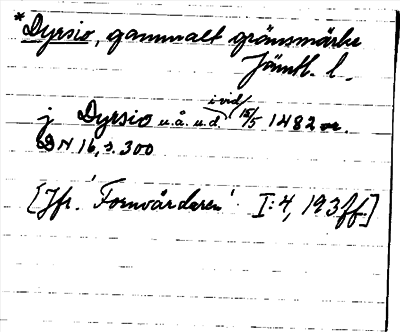 *Dyrsio, gammalt gränsmärke
Jämtl. l.
j Dyrsio u.å. u.d. i vid 15/5 1482 or.
DN 16, s. 300
[Jfr. 'Fornvårdaren' I:4, 193 ff.]